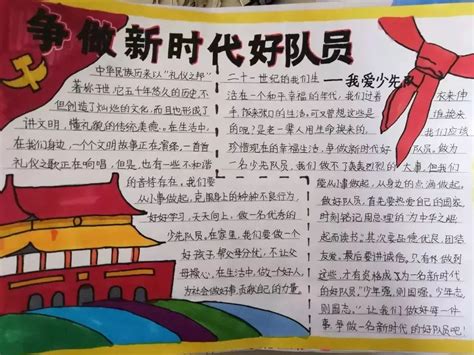 争做新时代好队员
——我爱少先队
中华民族历来以“礼仪之邦”
著称于世,它五千年悠久的历史,不
但创造了灿烂的文化,而且也形成了
讲文明,懂礼貌的传统美德。在生活中,
在我们身边,一个个文明故事正在演绎,一首首
礼仪之歌正在响唱,但是,也有一些不和谐
的音符存在。我们要
从小事做起,克服身上的种种不良行为,
好好学习,天天向上,做一名优秀的
少先队员。在家里,我们要做一个
好孩子,帮父母分忧,不让父
母操心,在生活中,做个好人,
为社会做好事,贡献自己的力量。
二十一世纪的我们生
活在一个和平幸福的年代,我们过着
手,饭来张口的生活,可曾想这些是
的吧?是老一辈人用生命换来的,
珍惜现在的幸福生活,争做新时代好
一名少先队员,我们做不了轰轰烈烈的
衣来伸
谁换来
我们应该
队员。作为
大事,但我们
能从小事做起,从身边的点滴做起,
做好队员,首先要热爱自己的国家,
时刻铭记周总理的“为中华之崛
起而读书”;其次要品德优良,团结
友爱。最后要讲诚信,只有你做到
这些,才有资格成为一名新时代
的好队员,“少年强,则国强,少年志,
则国志。”让我们做好每一件
事,争做一名新时代的好队员吧!